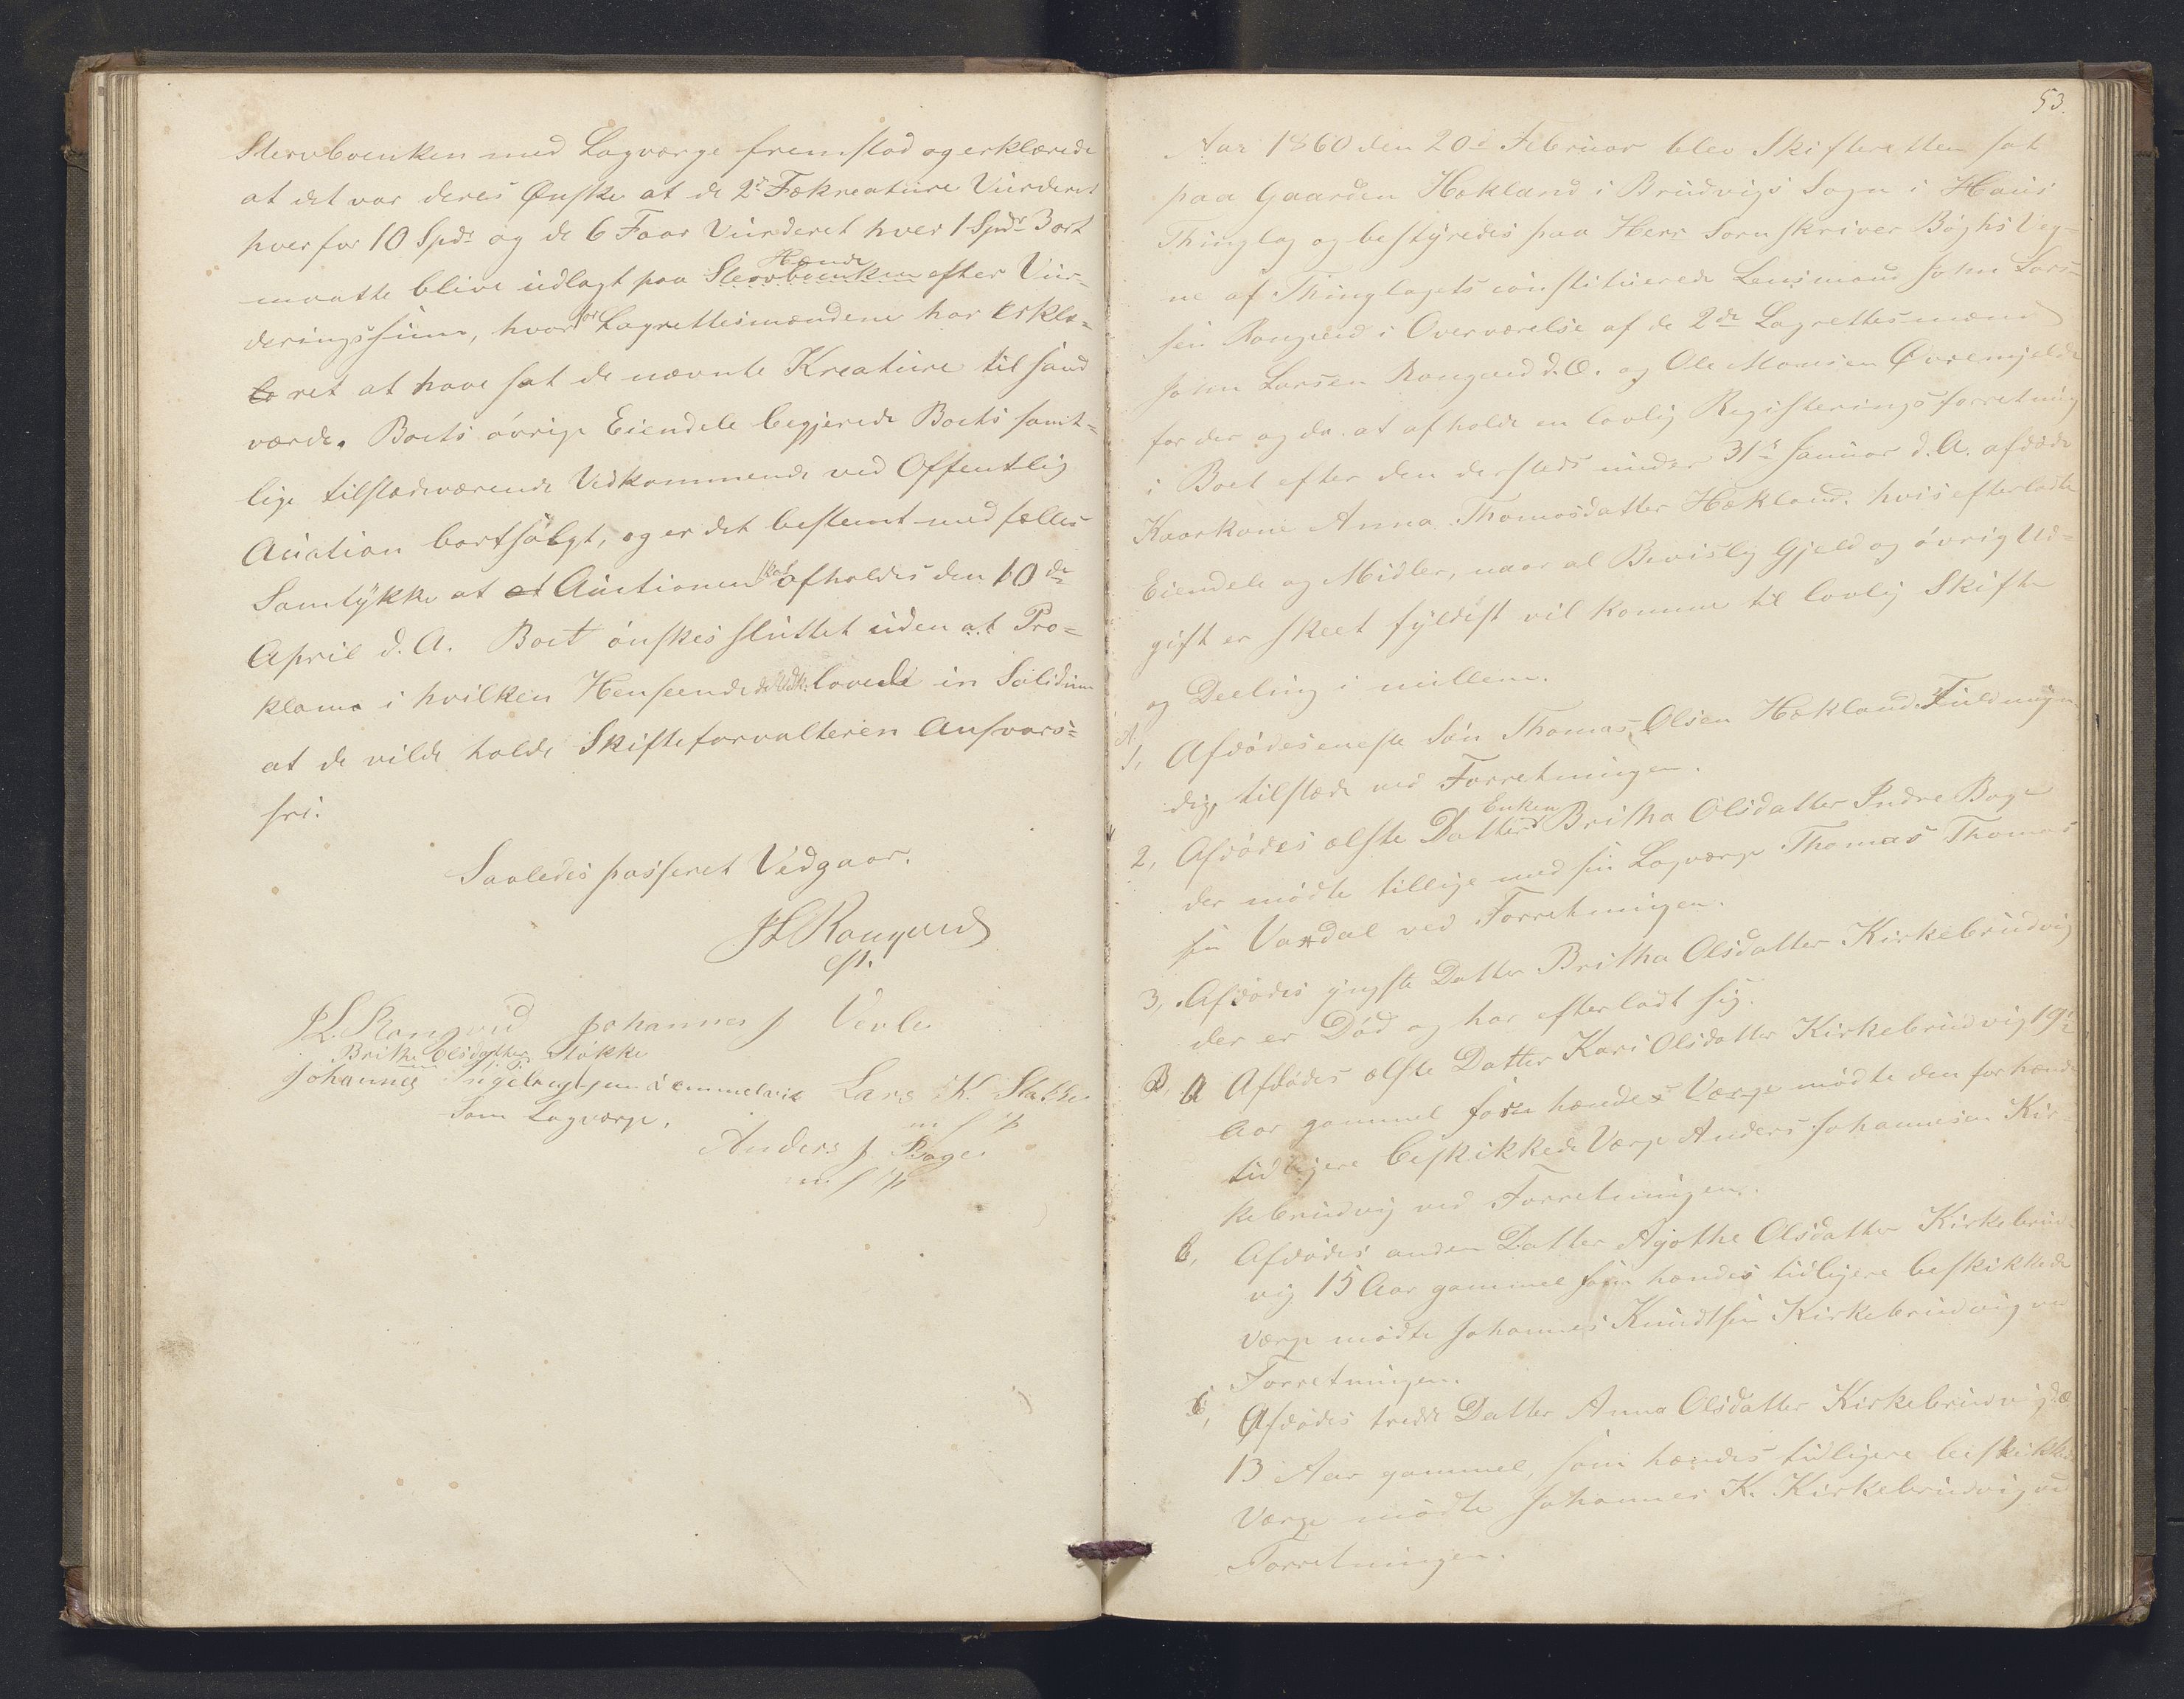 Stervboenken med Lagværge fremstod og erklærede
at det var deres Ønske at de 2de Fækreature Vurderet
hver for 10 Spdr og de 6 Faar Vurderet hver 1 Spdr 3 ort
maatte blive udlagt paa Stervboenken Hænde efter Vur-
deringssum, hvorfor Lagrettesmændene har erklæ-
ret at have sat de nævnte Kreature til sand
værde. Boets øvrige Eiendele begjerede Boets samt-
lige tilstædeværende Vedkommende ved Offentlig
Auction bortsolgt, og er det bestemt med fælles
Samtykke at Auctionen skal afholdes den 10de
April d. A. Boet ønskes sluttet uden at Pro-
klama i hvilken Henseende de Vedk. lovede in Solidum
at de vilde holde Skifteforvalteren Ansvars-
fri.
Saaledes passeret Vedgaar.
JL Rongved
cst.
JL Rongved Johannes J Vevle
Britha Olsdatter Stokke
m. f. P.
Johannes Ingebrigtsen Lars K. Stokke
Som Lagværge. m f P
Anders J. Boge
m f P
53.
Aar 1860 den 20de Februar blev Skifteretten sat
paa Gaarden Hokland i Brudvigs Sogn i Haus
Thinglag og bestyredes paa Herr Sorenskriver Bøghs Veg-
ne af Thinglagets constituerede Lensmand John Lars-
sen Rongved i Overværelse af de 2de Lagrettesmænd
John Larsen Rongved d. O. og Ole Monsen Øvremjelde
for der og da at afholde en lovlig Registeringsforretning
i Boet efter den dersteds under 31te Januar d. A. afdøde
Kaarkone Anna Thomasdatter Hokland, hvis efterladte
Eiendele og Midler, naar al Bevislig Gjeld og øvrig Ud-
gift er skeet fyldist vil komme til lovlig Skifte
og Deeling i millem.
A.
1, Afdødes eneste Søn Thomas Olsen Hokland Fuldmyn-
dig, tilstæde ved Forretningen.
2, Afdødes ælste Datter Enken Britha Olsdatter Indre Boge
der mødte tillige med sin Lagværge Thomas Thomas
sen Vandal ved Forretningen.
3, Afdødes yngste Datter Britha Olsdatter Kirkebrudvig
der er Død og har efterladt sig.
B, a Afdødes ælste Datter Kari Olsdatter Kirkebrudvig 19½
Aar gammel for hændes Værge mødte den for hænde
tidligere beskikkede Værge Anders Johannesen Kir-
kebrudvig ved Forretningen.
b, Afdødes anden Datter Agathe Olsdatter Kirkebrud-
vig 15 Aar gammel som hændes tidligere beskikkede
Værge mødte Johannes Knudtsen Kirkebrudvig ved
Forretningen.
c, Afdødes tredde Datter Anna Olsdatter Kirkebrudvig
13 Aar gammel, som hændes tidligere beskikkede
Værge mødte Johannes K. Kirkebrudvig ved
Forretningen.